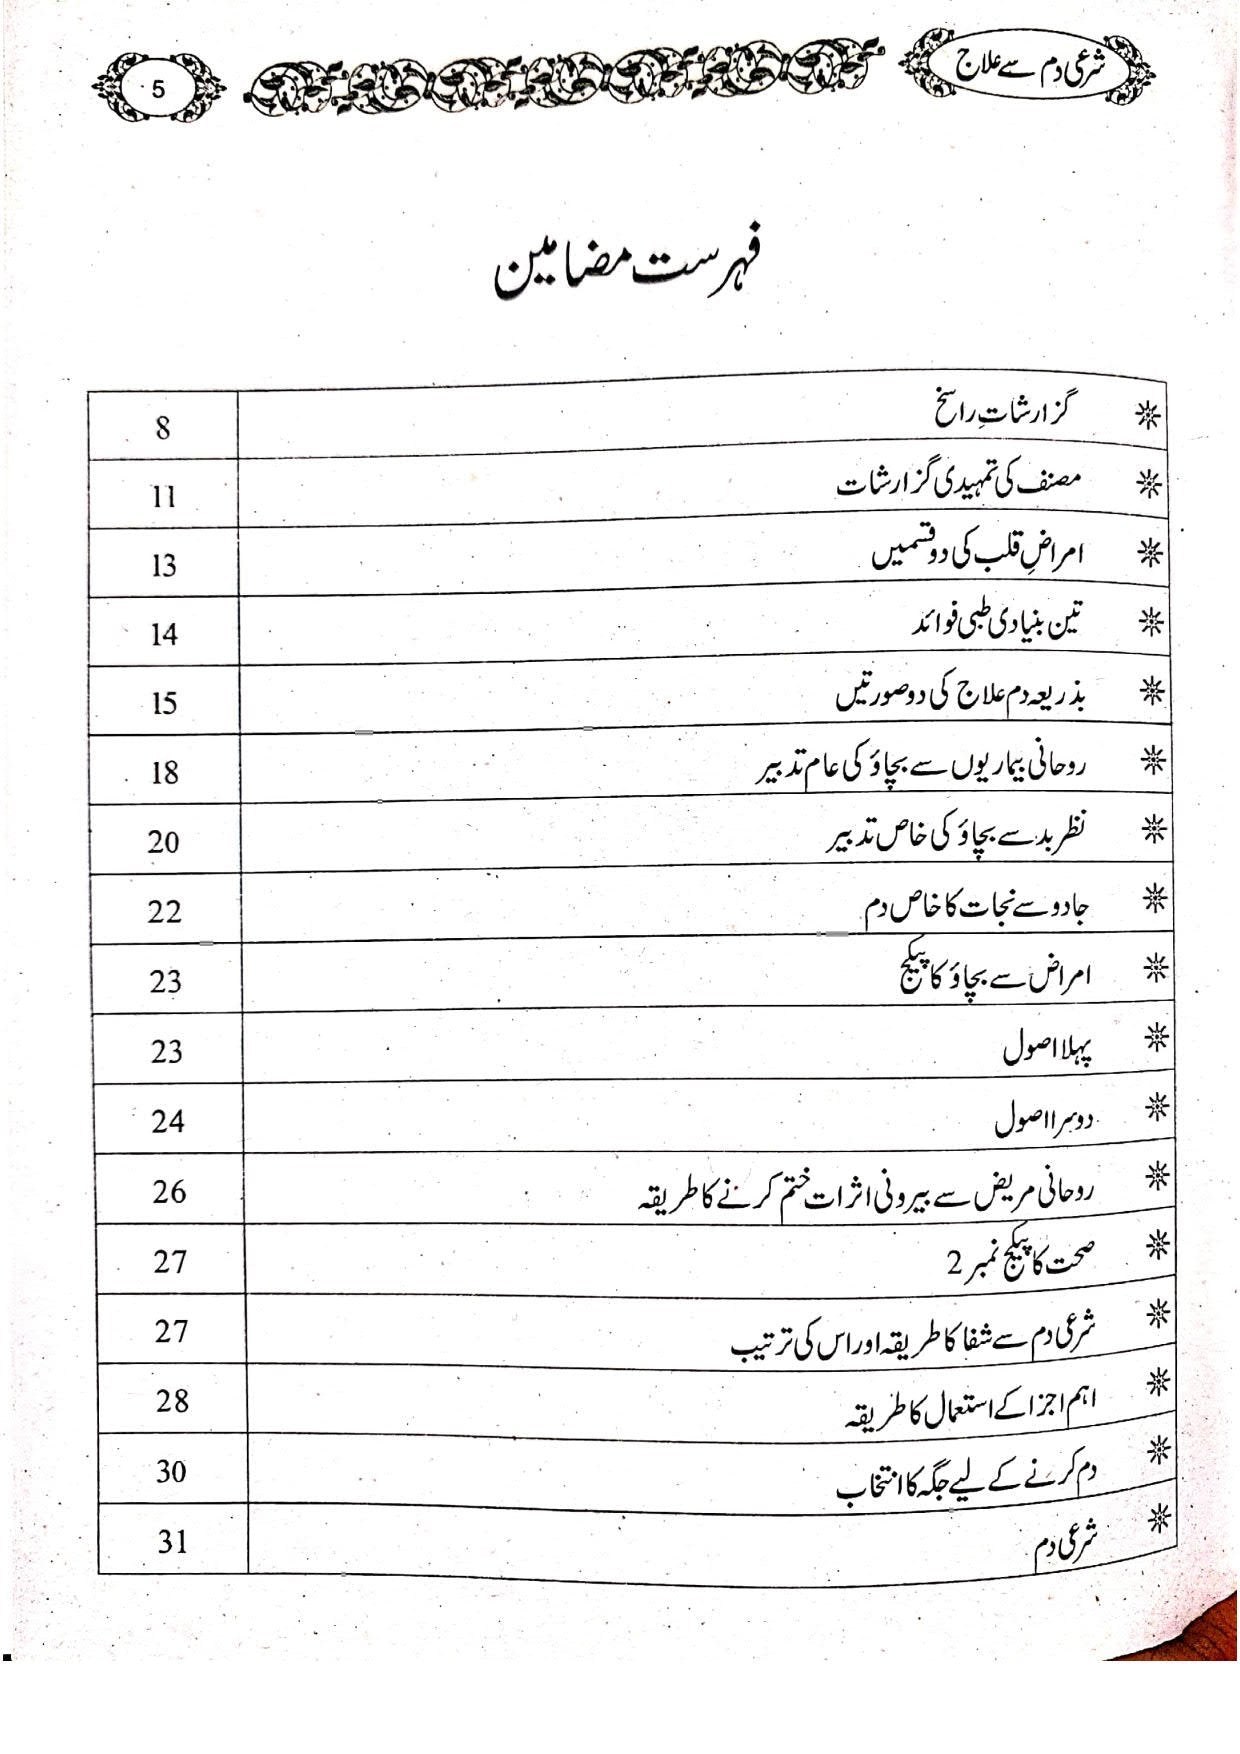 شرعی دم سے علاج
5
فہرست مضامین
گزارشاتِ راسخ 8
مصنف کی تمہیدی گزارشات 11
امراضِ قلب کی دو قسمیں 13
تین بنیادی طبی فوائد 14
بذریعہ دم علاج کی دو صورتیں 15
روحانی بیماریوں سے بچاؤ کی عام تدبیر 18
نظر بد سے بچاؤ کی خاص تدبیر 20
جادو سے نجات کا خاص دم 22
امراض سے بچاؤ کا پیکج 23
پہلا اصول 23
دوسرا اصول 24
روحانی مریض سے بیرونی اثرات ختم کرنے کا طریقہ 26
صحت کا پیکج نمبر 2 27
شرعی دم سے شفا کا طریقہ اور اس کی ترتیب 27
اہم اجزا کے استعمال کا طریقہ 28
دم کرنے کے لیے جگہ کا انتخاب 30
شرعی دم 31